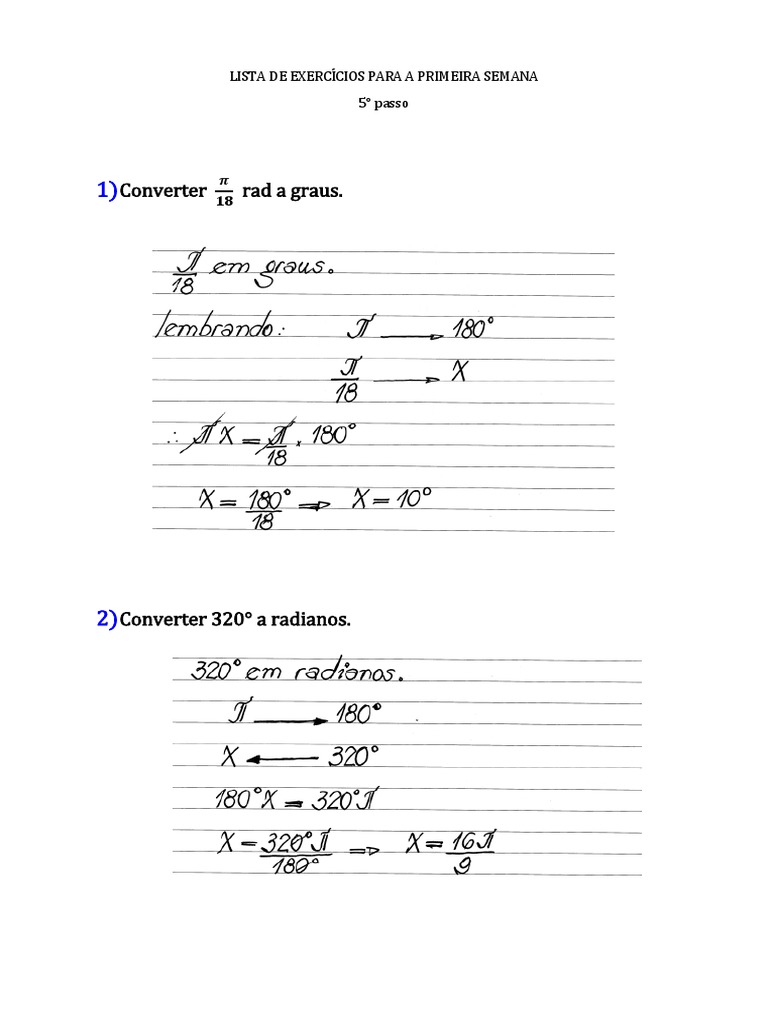 LISTA DE EXERCÍCIOS PARA A PRIMEIRA SEMANA
5° passo
1) Converter π/18 rad a graus.
π/18 em graus.
lembrando: π ⟶ 180°
π/18 ⟶ X
∴ πX = π/18 . 180°
X = 180°/18 ⇒ X = 10°
2) Converter 320° a radianos.
320° em radianos.
π ⟶ 180°
X ⟵ 320°
180°X = 320°π
X = 320°π/180° ⇒ X = 16π/9